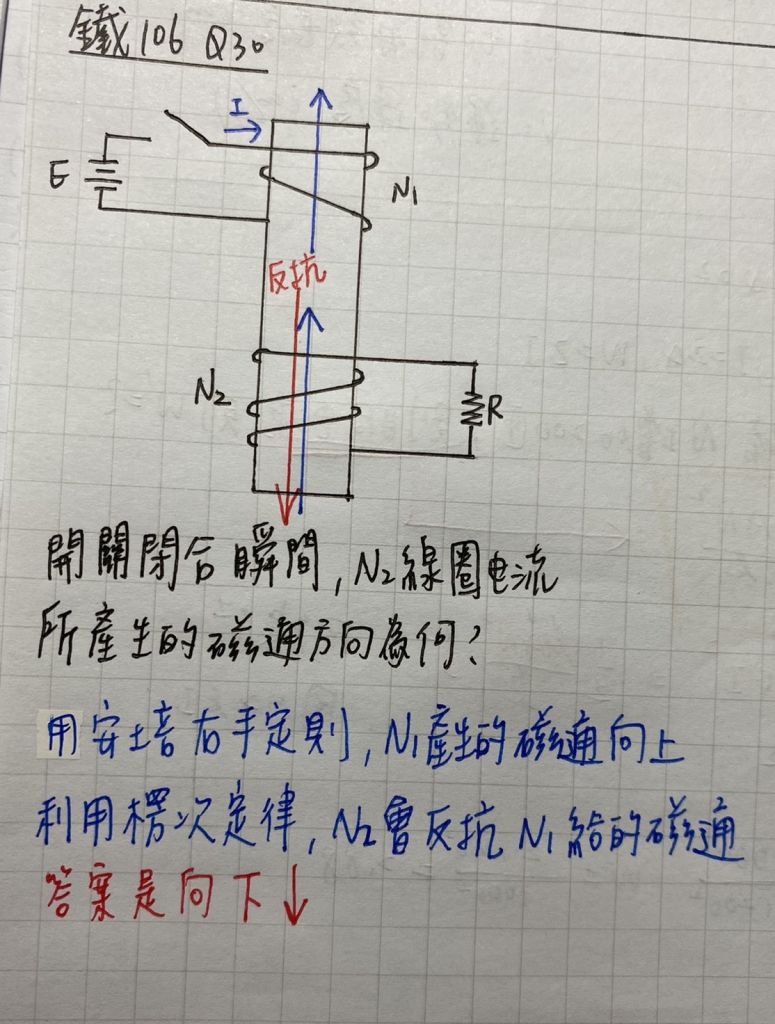 鐵106 Q30
I
E
N₁
反抗
N₂
R
開關閉合瞬間,N₂線圈电流
所產生的磁通方向為何?
用安培右手定則,N₁產生的磁通向上
利用楞次定律,N₂會反抗N₁給的磁通
答案是向下↓